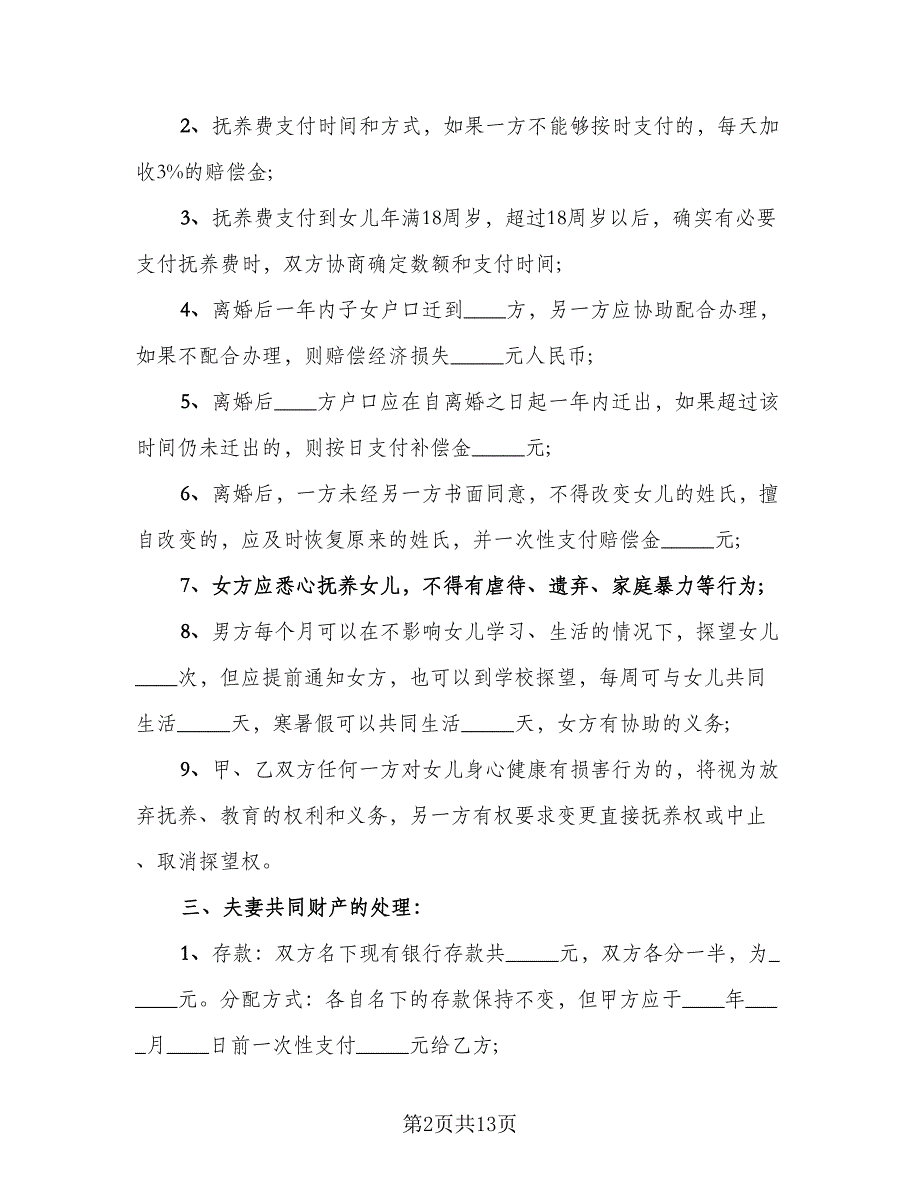 2、抚养费支付时间和方式，如果一方不能够按时支付的，每天加
收3%的赔偿金;
3、抚养费支付到女儿年满18周岁，超过18周岁以后，确实有必要
支付抚养费时，双方协商确定数额和支付时间;
4、离婚后一年内子女户口迁到____方，另一方应协助配合办理，
如果不配合办理，则赔偿经济损失_____元人民币;
5、离婚后____方户口应在自离婚之日起一年内迁出，如果超过该
时间仍未迁出的，则按日支付补偿金_____元;
6、离婚后，一方未经另一方书面同意，不得改变女儿的姓氏，擅
自改变的，应及时恢复原来的姓氏，并一次性支付赔偿金_____元;
7、女方应悉心抚养女儿，不得有虐待、遗弃、家庭暴力等行为;
8、男方每个月可以在不影响女儿学习、生活的情况下，探望女儿
____次，但应提前通知女方，也可以到学校探望，每周可与女儿共同
生活_____天，寒暑假可以共同生活_____天，女方有协助的义务;
9、甲、乙双方任何一方对女儿身心健康有损害行为的，将视为放
弃抚养、教育的权利和义务，另一方有权要求变更直接抚养权或中止
、取消探望权。
三、夫妻共同财产的处理：
1、存款：双方名下现有银行存款共_____元，双方各分一半，为_
____元。分配方式：各自名下的存款保持不变，但甲方应于____年___
_月____日前一次性支付_____元给乙方;
第2页共13页